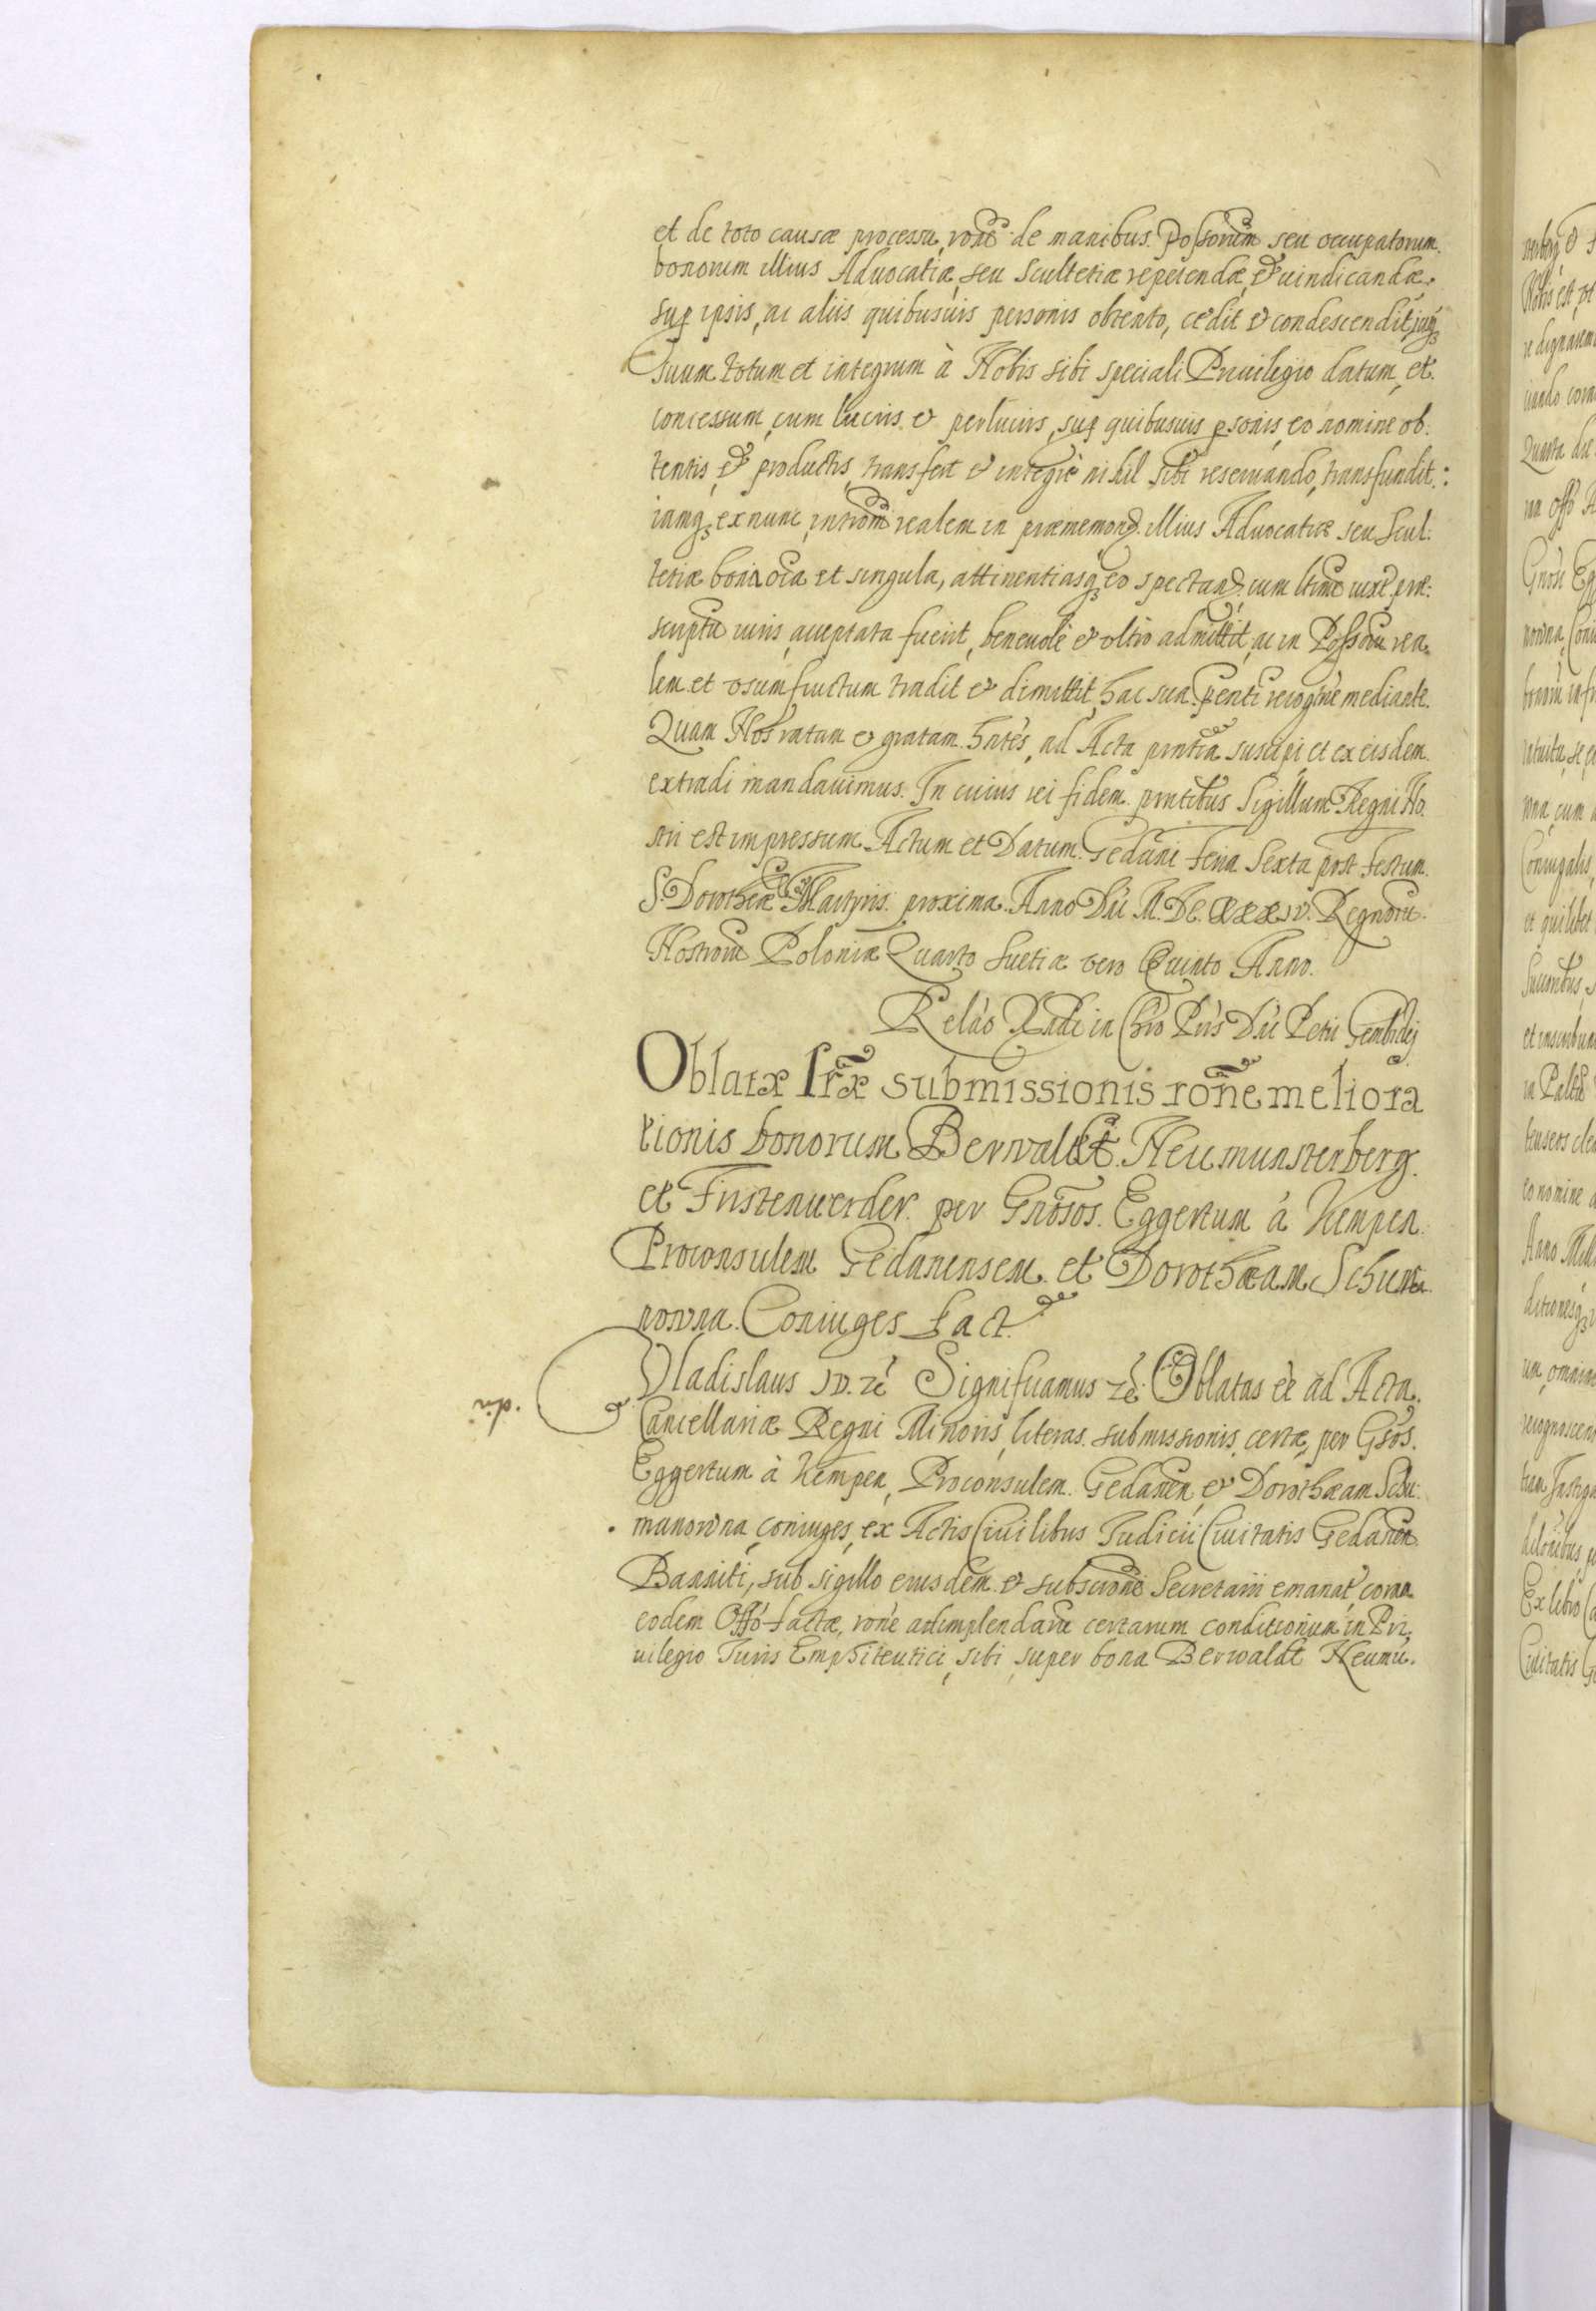 et de toto causæ processu, rõne de manibus Possorum seu occupatorum
bonorum illius Advocatiæ, seu Scultetiæ repetendæ, et uindicandæ,
sup ipsis, ac aliis quibusuis personis obtento, cedit et condescendit, iusq3
suum totum et integrum à Nobis sibi speciali Priuilegio datum, et
concessum, cum lucris et perlucris, sup quibusuis psonis, eo nomine ob:
tentis, et productis, transfert et integrè nihil sibi reseruando, transfundit:
iamq3 ex nunc intrõm realem in præmemorat illius Advocatiæ seu Scul:
tetiæ bona oĩa et singula, attinentiasq3 eo spectan, cum ltimè iuxt præ:
scriptu iuris acceptata fuerit, beneuolè et vltrò admittit, ac in Possõm rea,
lem et vsumfructum tradit et dimittit, hac sua pnti recogñe mediante.
Quam Nos ratam et gratam hntẽs, ad Acta pnntia suscipi et ex eisdem
extradi mandauimus. In cuius rei fidem pntibus Sigillum Regni No
stri est impressum. Actum et Datum Gedani Feria Sexta post Festum
S. Dorotheæ Martyris proxima. Anno Dñi M. DC. XXXIV. Regnorũ
Nostrorũ Poloniæ Quarto Suetiæ vero Quinto Anno.
Relão Rndi in Chro Pris Dñi Petri Gembicky
Oblatæ lræ submissionis rõne meliora
tionis bonorum Berwaldt. Neumunsterberg.
et Firstenwerder per Gnõsos. Eggertum à Kempen
Proconsulem Gedanensem et Dorothæam Schuma
nowna Coniuges fact.
Vladislaus IV. zc Significamus zc Oblatas eẽ ad Acta,
Cancellariæ Regni Minoris, literas submissionis certæ, per Gsos.
Eggertum à Kempen, Proconsulem Gedanen, et Dorothæam Schu:
manowna, coniuges, ex Actis Ciuilibus Iudicii Ciuitatis Gedanen
Banniti, sub sigillo eiusdem et subscrione Secretarii emanat, coram
eodem Offo factæ, rone adimplendarũ certarum conditionum in Pri,
uilegio Iuris Emphiteutici, sibi super bona Berwaldt Neumũ.